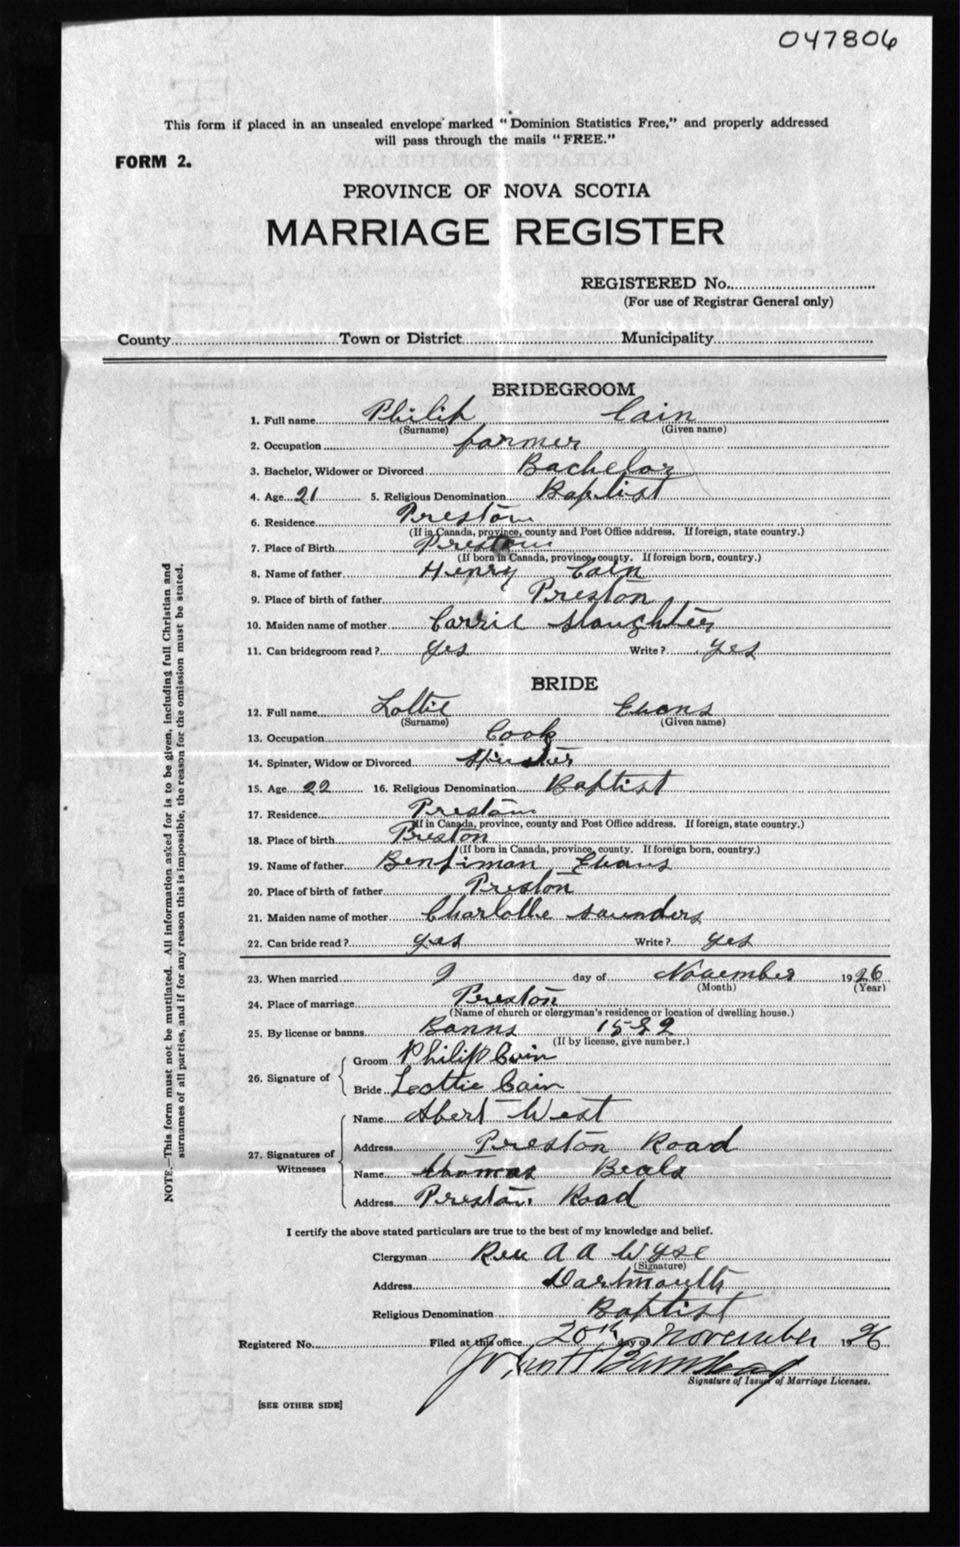 047806
This form if placed in an unsealed envelope marked "Dominion Statistics Free," and properly addressed
will pass through the mails "FREE."
FORM 2.
PROVINCE OF NOVA SCOTIA
MARRIAGE REGISTER
REGISTERED No.
(For use of Registrar General only)
County Town or District Municipality
BRIDEGROOM
1. Full name Philip Cain
(Surname) (Given name)
2. Occupation farmer
3. Bachelor, Widower or Divorced Bachelor
4. Age 21 5. Religious Denomination Baptist
6. Residence Preston
(If in Canada, province, county and Post Office address. If foreign, state country.)
7. Place of Birth Preston
(If born in Canada, province, county. If foreign born, country.)
8. Name of father Henry Cain
9. Place of birth of father Preston
10. Maiden name of mother Carrie Slaughter
11. Can bridegroom read? yes Write? yes
BRIDE
12. Full name Lottie Evans
(Surname) (Given name)
13. Occupation Cook
14. Spinster, Widow or Divorced Spinster
15. Age 22 16. Religious Denomination Baptist
17. Residence Preston
(If in Canada, province, county and Post Office address. If foreign, state country.)
18. Place of birth Preston
(If born in Canada, province, county. If foreign born, country.)
19. Name of father Benjiman Evans
20. Place of birth of father Preston
21. Maiden name of mother Charlotte Saunders
22. Can bride read? yes Write? yes
23. When married 9 day of November 1926
(Month) (Year)
24. Place of marriage Preston
(Name of church or clergyman's residence or location of dwelling house.)
25. By license or banns Banns
(If by license, give number.)
26. Signature of Groom Philip Cain
Bride Lottie Cain
27. Signatures of Witnesses Name Abert West
Address Preston Road
Name Thomas Beals
Address Preston Road
I certify the above stated particulars are true to the best of my knowledge and belief.
Clergyman Rev A A Wyse
(Signature)
Address Dartmouth
Religious Denomination Baptist
Registered No. Filed at this office 20th day of November 1926
John H
Signature of Issuer of Marriage Licenses.
[SEE OTHER SIDE]
NOTE.—This form must not be mutilated. All information asked for is to be given, including full Christian and
surnames of all parties, and if for any reason this is impossible, the reason for the omission must be stated.